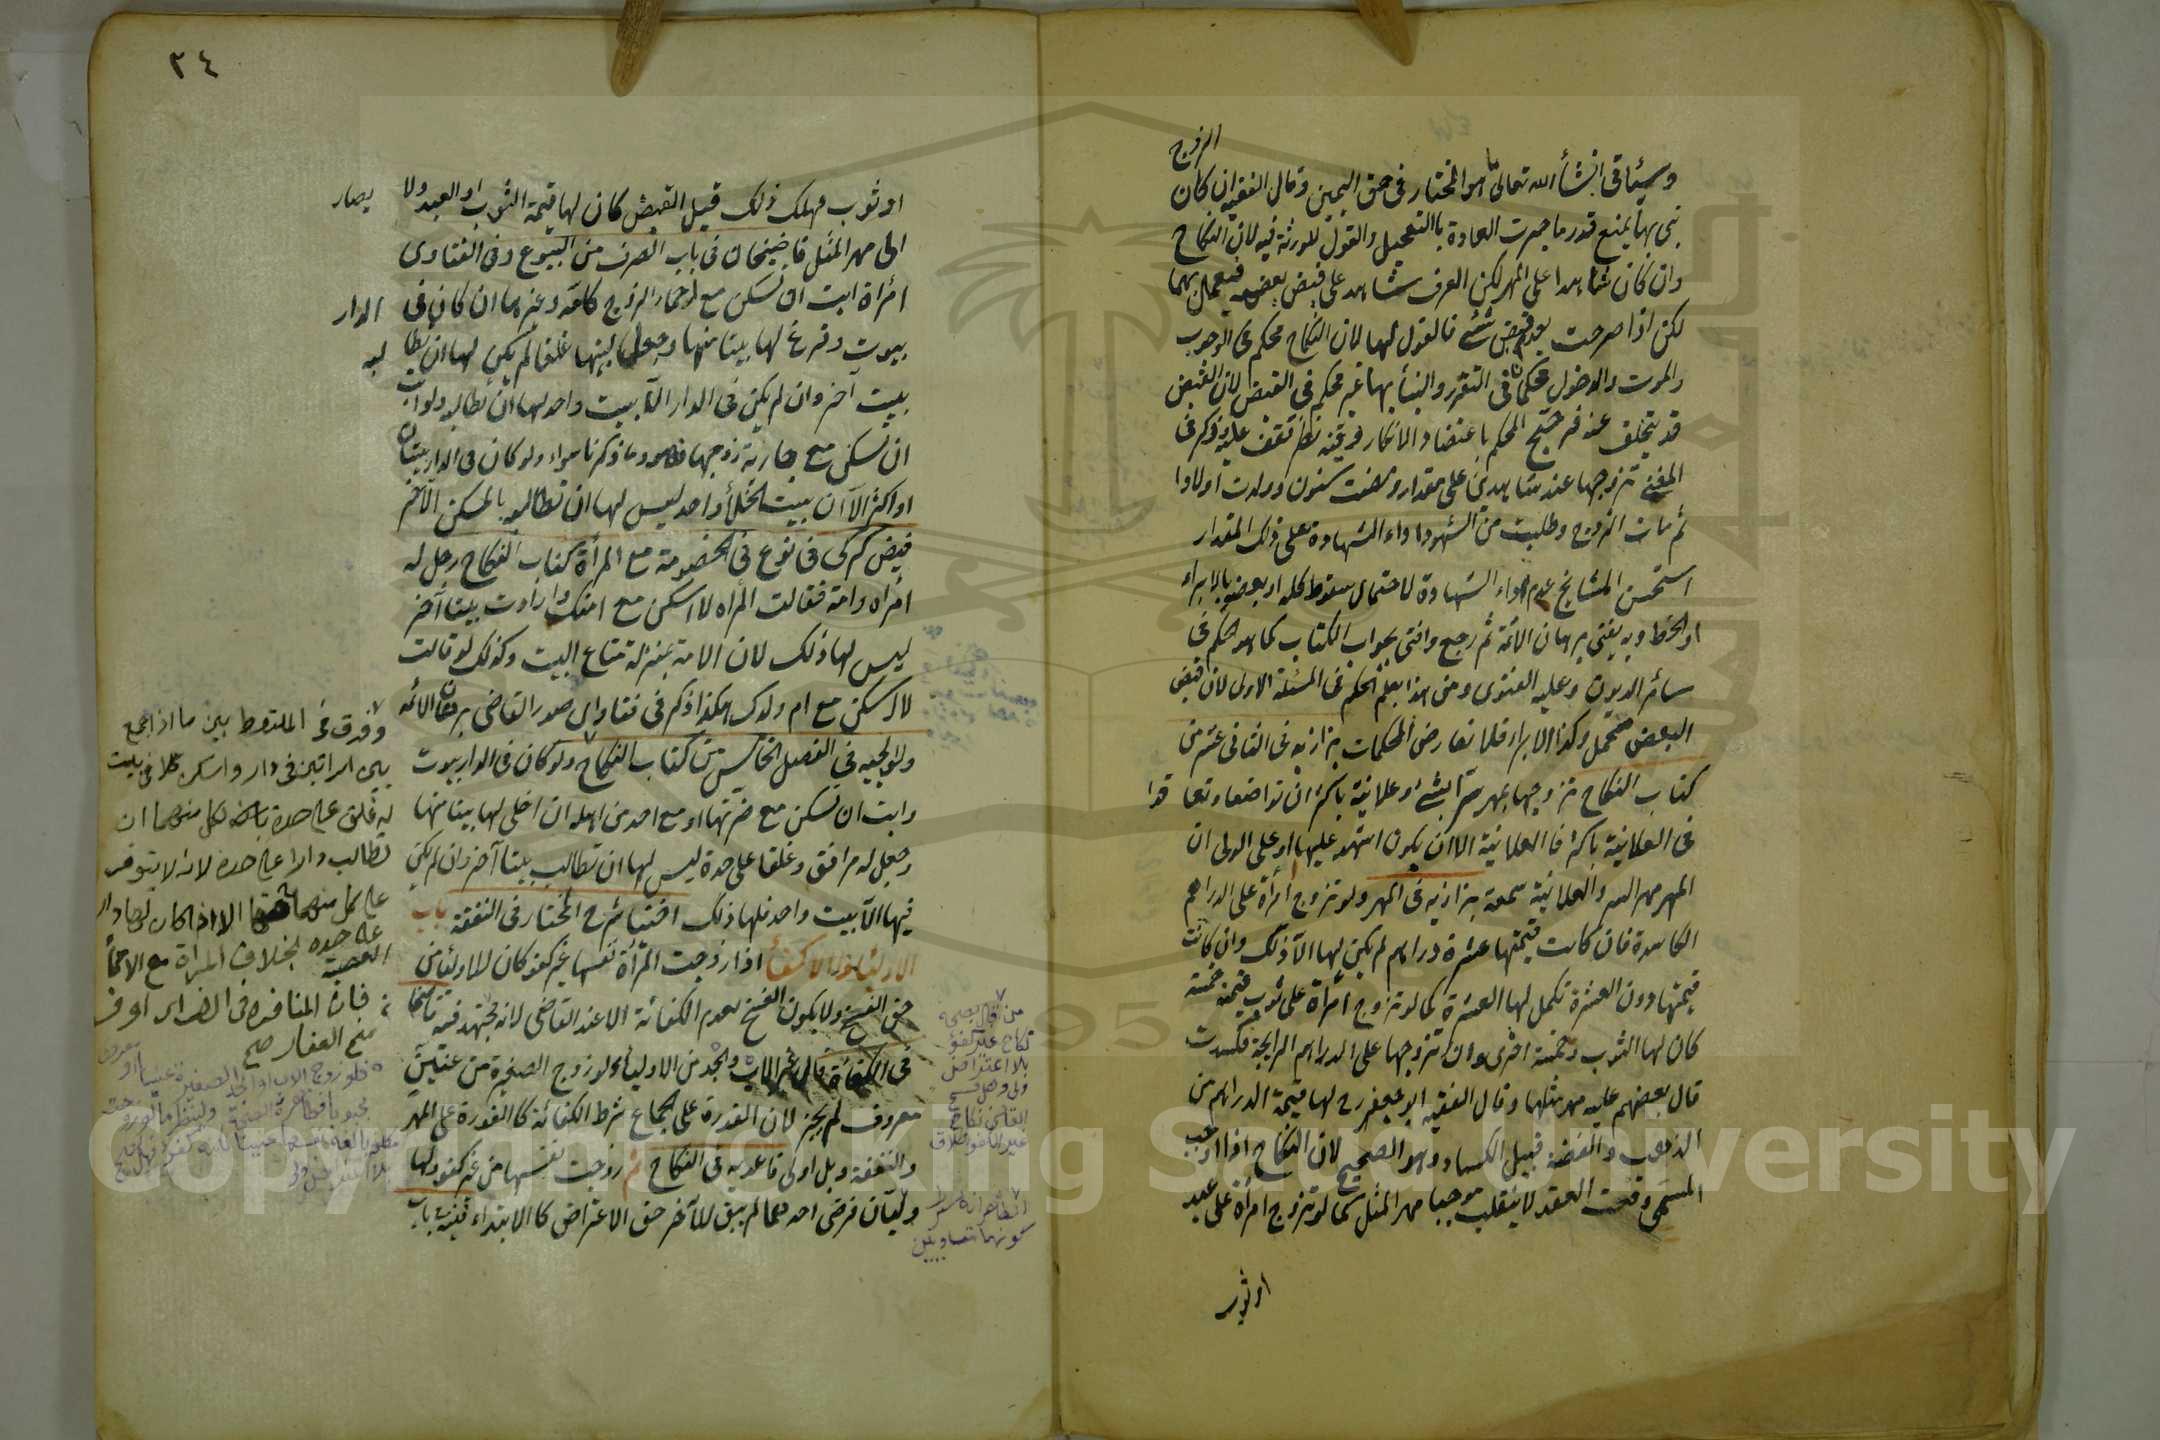 الزوج
وسيأتي انشأ الله تعالى ما هو المختار في حق اليمين وقال الفقيه ان كان
بنى بها يمنع قدر ما جرت العادة بالتعجيل والقول للورثة فيه لان النكاح
وان كان شاهدا على المهر لكن العرف شاهد على قبض بعضه فيعمل بهما
لكن اذا صرحت بعدم قبض شئ فالقول لها لان النكاح محكم في الوجوب
والموت والدخول محكم في التقرر والبنأ بها غير محكم في القبض لان القبض
قد يتخلف عنه فرجح المحكم
المغني تزوجها عند شاهدين على مقدار ومضت سنون وولدت اولادا
ثم مات الزوج وطلبت من الشهود اداء الشهادة على ذلك المقدار
استحسن المشايخ عدم اداء الشهادة لاحتمال سقوط كله او بعضه بالابراء
او الحط وبه يفتي برهان الائمة ثم رجع وافتى بجواب الكتاب كما هو الحكم في
سائر الديون وعليه الفتوى ومن هذا يعلم الحكم في المسئلة الاولى لان قبض
البعض محتمل وكذا الابراء فلا تعارض المحكمات بزازيه في الثاني عشر من
كتاب النكاح تزوجها بمهر سرا بشئ وعلانية باكثر ان تواضعا وتعاقدا
في العلانية باكثر فالعلانية الا ان يكون اشهد عليها او على الولي ان
المهر مهر السر والعلانية سمعة بزازيه في المهر ولو تزوج امرأة على الدراهم
الكاسدة فان كانت قيمتها عشرة دراهم لم يكن لها الا ذلك وان كانت
قيمتها دون العشرة تكمل لها العشرة كما لو تزوج امرأة على ثوب قيمته خمسة
كان لها الثوب وخمسة اخرى وان تزوجها على الدراهم الرايجة فكسدت
قال بعضهم عليه مهر مثلها وقال الفقيه ابو جعفر رح لها قيمة الدراهم من
الذهب والفضة قبيل الكساد وهو الصحيح لان النكاح اذا اوجب
المسمى وقت العقد لا ينقلب موجبا مهر المثل كما لو تزوج امرأة على عبد
او ثوب
٣٤
او ثوب فهلك ذلك قبل القبض كان لها قيمة الثوب او العبد ولا يصار
الى مهر المثل قاضيخان في باب الصرف من البيوع وفي الفتاوى
امرأة ابت ان تسكن مع احماء الزوج كامه وغيرها ان كان في الدار
بيوت وفرغ لها بيتا منها وجعل لبيتها غلقا لم يكن لها ان تطالبه
ببيت آخر وان لم يكن في الدار الا بيت واحد لها ان تطالبه ولو ابت
ان تسكن مع جارية زوجها فهو وما ذكرنا سواء ولو كان في الدار بيتان
او اكثر الا ان بيت الخلأ واحد ليس لها ان تطالبه بالمسكن الآخر
فيض كركي في نوع في الخصومة مع المرأة كتاب النكاح رجل له
امرأه وامة فقالت المرأه لا اسكن مع امتك وارادت بيتا آخر
ليس لها ذلك لان الامة بمنزلة متاع البيت وكذلك لو قالت
لا اسكن مع ام ولدك هكذا ذكر في فتاوى صدر القاضي برهان الائمه
ولوالجيه في الفصل الخامس من كتاب النكاح ولو كان في الدار بيوت
وابت ان تسكن مع ضرتها او مع احد من اهله ان اخلى لها بيتا منها
وجعل له مرافق وغلقا على حدة ليس لها ان تطالب بيتا آخر وان لم يكن
فيها الا بيت واحد فلها ذلك اختيار شرح المختار في النفقة باب
الاوليأ والاكفأ اذا زوجت المرأة نفسها غير كفو كان للاوليأ من
حق الفسخ ولا يكون الفسخ لعدم الكفائة الا عند القاضي لانه مجتهد فيه قاضيخان
في الكفائة قال غير الاب والجد من الاوليأ لو زوج الصغيرة من عنين
معروف لم يجز لان القدرة على الجماع شرط الكفائة كالقدرة على المهر
والنفقة وبل اولى قاعديه في النكاح زوجت نفسها من غير كفو ولها
وليان فرضى احدهما لم يبق للآخر حق الاعتراض كالابتداء قنيه باب
وفرق في الملتقط بين ما اذا جمع
بين امراتين في دار واسكن كلا في بيت
له غلق على حدة بان لكل منهما ان
تطالب دارا على حدة لانه لا يتوفر
على كل منهما حقها الا اذا كان لها دار
على حده بخلاف المرأة مع الاحمأ
فان المنافرة في الضراير اوفر
منح الغفار صح
فلو زوج الاب او الجد الصغيرة عنينا او
من قال بصحة
نكاح غير كفو
بلا اعتراض
ولي
القاضي نكاح
غير الكفو طلاق
الظاهر انه شرط
كونهما متساويين